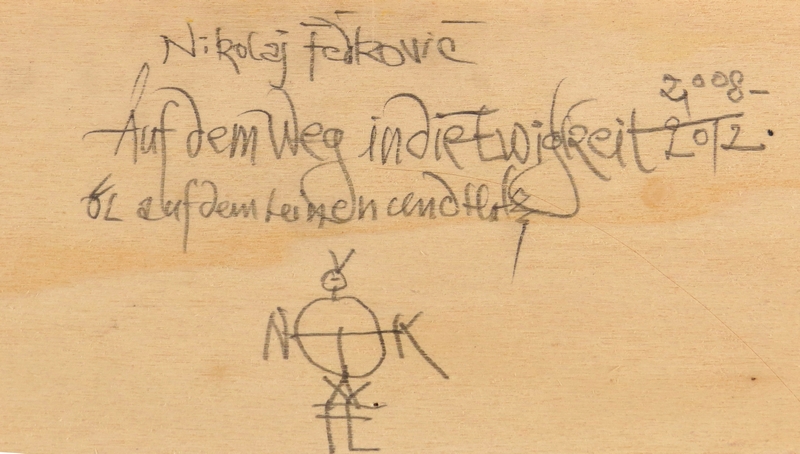 Nikolaj Fečkovič
Auf dem Weg in die Ewigkeit 2008-2012.
ÖL auf dem Leinen und Holz
N K